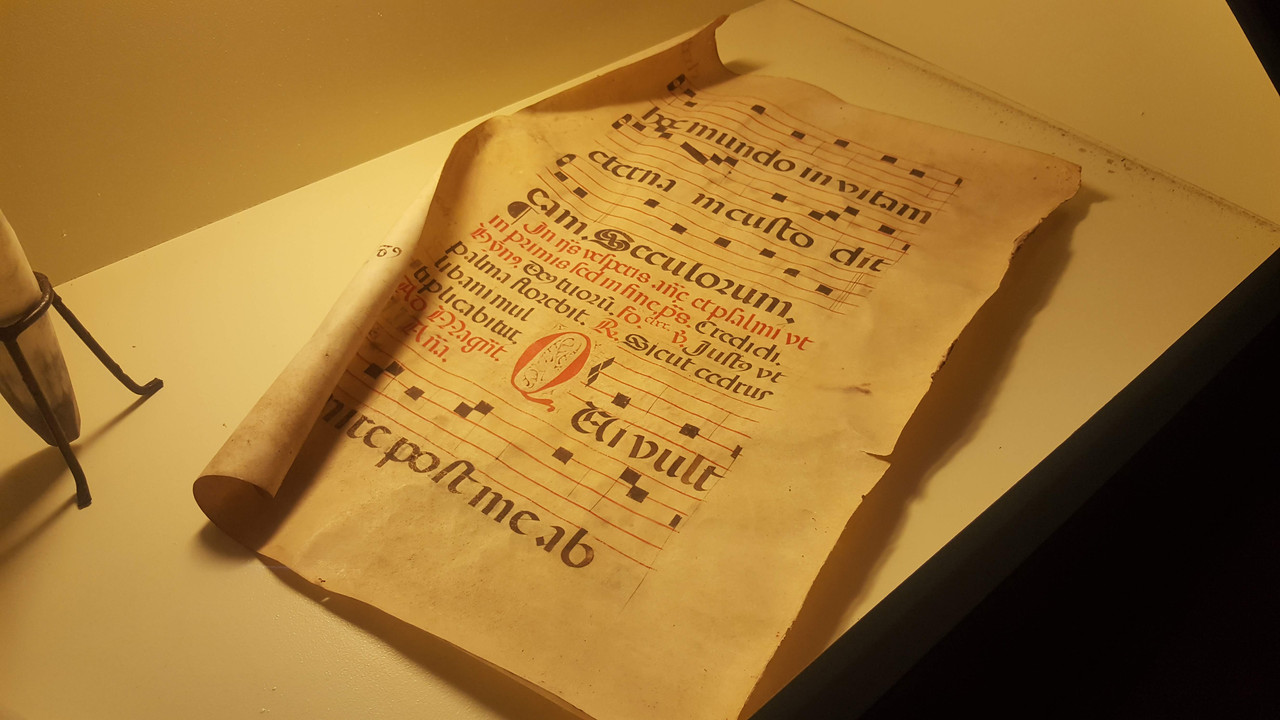 hoc mundo in vitam
eterna m custo dit
eam. Seculorum.
¶ In ijs vesperis añe et psalmi vt
in primis sed in fine ps. Credidi.
Hyn9. Exo tuorũ. fo. v. Just9 vt
palma florebit. R. Sicut cedrus
libani mul
tiplicabitur.
Ad Magñt
Aña.
Qui vult
nire post me ab